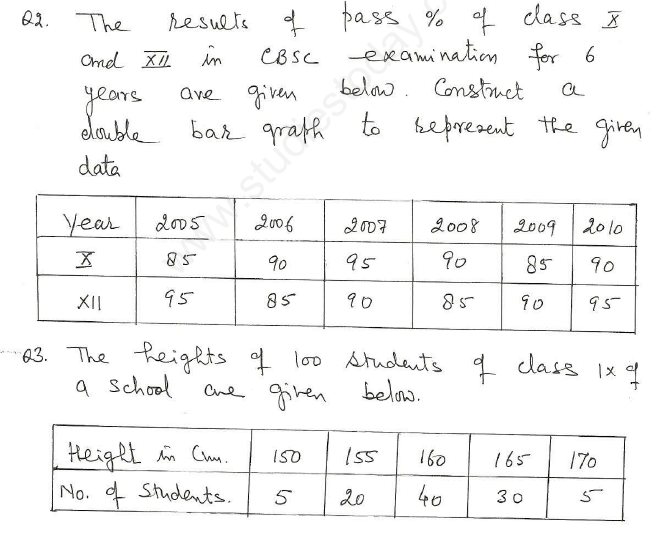 Q2. The results of pass % of class X
and XII in CBSC examination for 6
years are given below. Construct a
double bar graph to represent the given
data
Year 2005 2006 2007 2008 2009 2010
X 85 90 95 90 85 90
XII 95 85 90 85 90 95
Q3. The heights of 100 students of class IX of
a school are given below.
Height in Cm. 150 155 160 165 170
No. of Students. 5 20 40 30 5